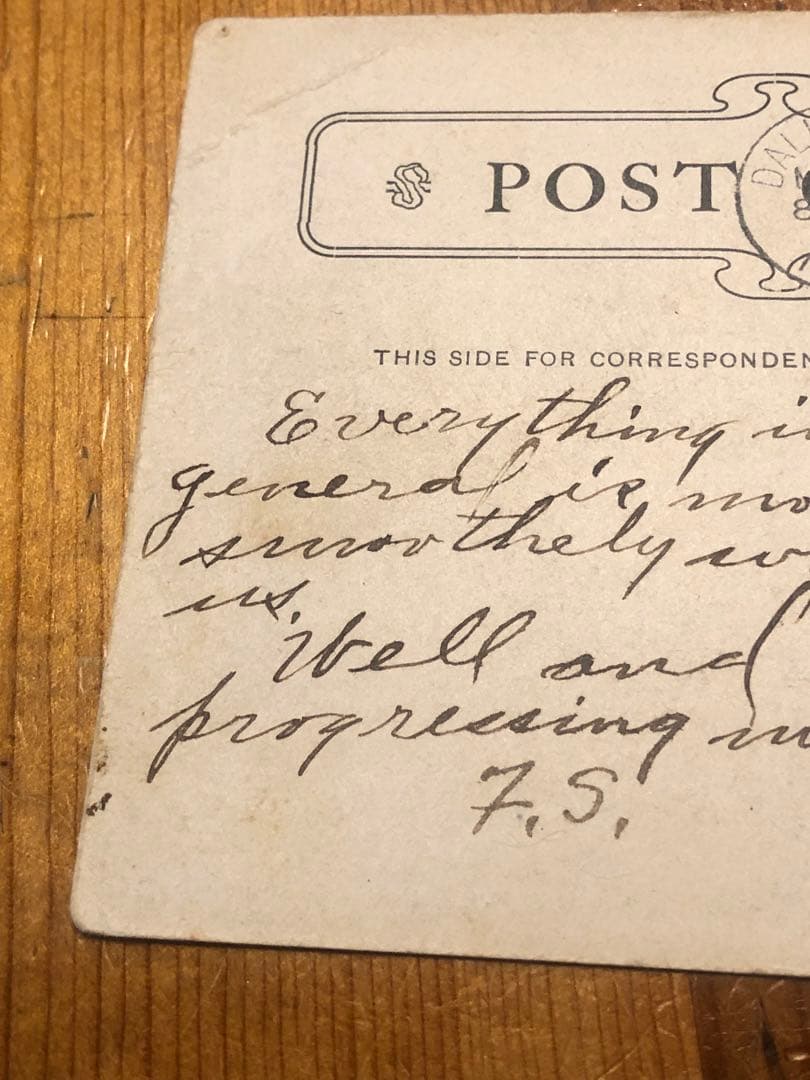 S POST
DAL
THIS SIDE FOR CORRESPONDEN
Everything i
general is mo
smoothely w
us.
Well and
progressing
F.S.